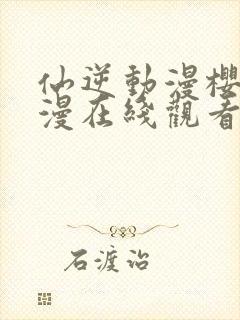 仙逆動漫櫻
漫在綫觀看
石渡治